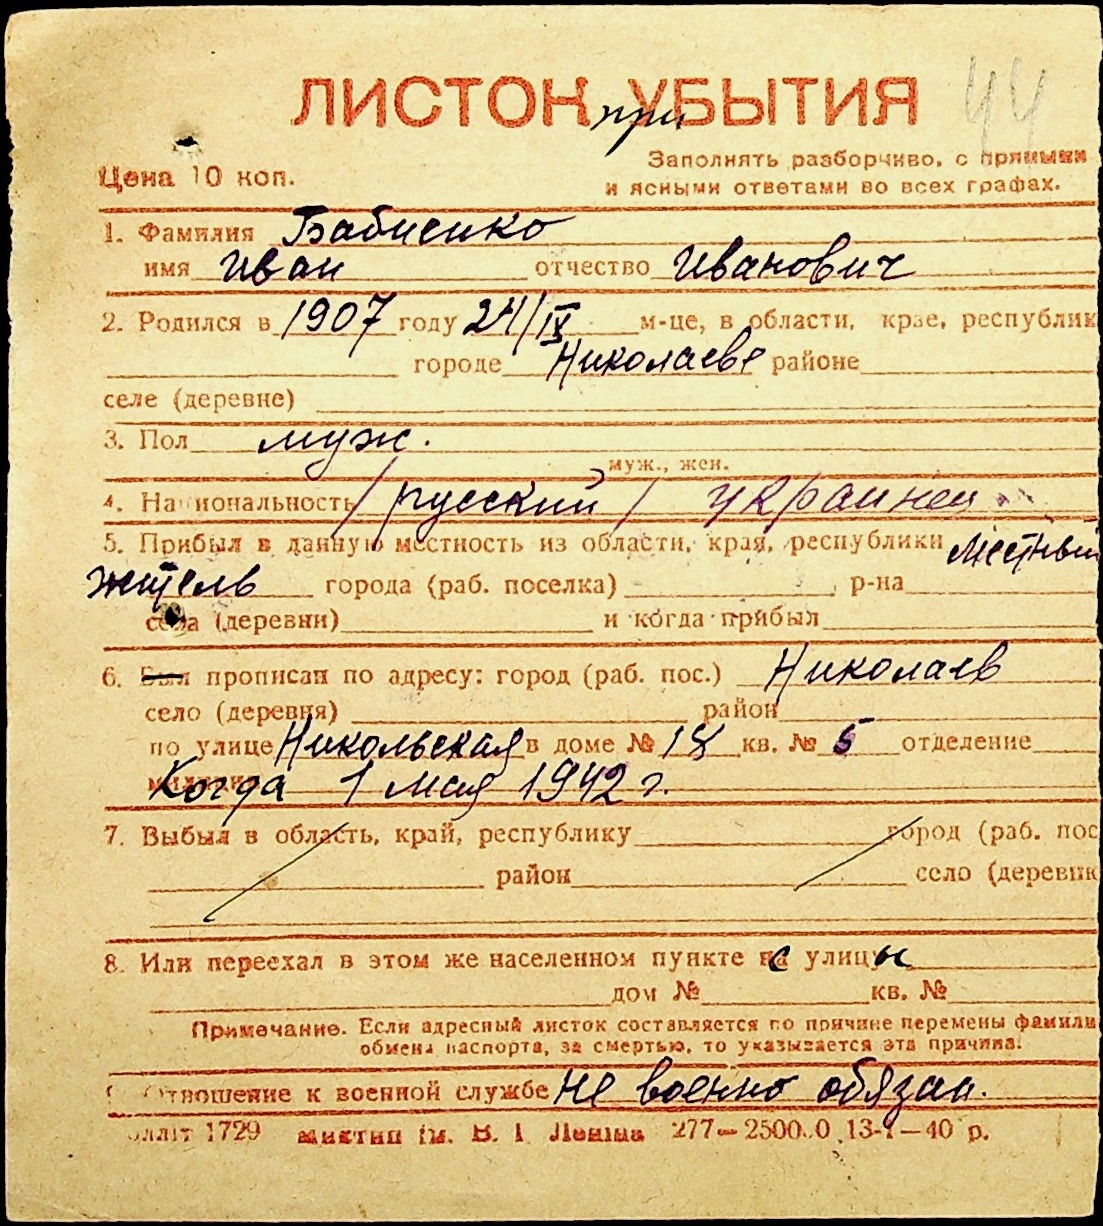 44
ЛИСТОК при УБЫТИЯ
Цена 10 коп.
Заполнять разборчиво, с прямыми
и ясными ответами во всех графах.
1. Фамилия Бабиенко
имя Иван отчество Иванович
2. Родился в 1907 году 24/IV м-це, в области, крае, республик
городе Николаеве районе
селе (деревне)
3. Пол муж.
муж., жен.
4. Национальность /русский/ украинец
5. Прибыл в данную местность из области, края, республики местный
житель города (раб. поселка) р-на
села (деревни) и когда прибыл
6. Был прописан по адресу: город (раб. пос.) Николаев
село (деревня) район
по улице Никольская в доме № 18 кв. № 5 отделение
милиции Когда 1 мая 1942 г.
7. Выбыл в область, край, республику город (раб. пос
район село (деревня
8. Или переехал в этом же населенном пункте с улицы
дом № кв. №
Примечание. Если адресный листок составляется по причине перемены фамили
обмена паспорта, за смертью, то указывается эта причина.
Отношение к военной службе не военно обязан.
1729 ім. В. І. Леніна 277—2500.0 13-I—40 р.